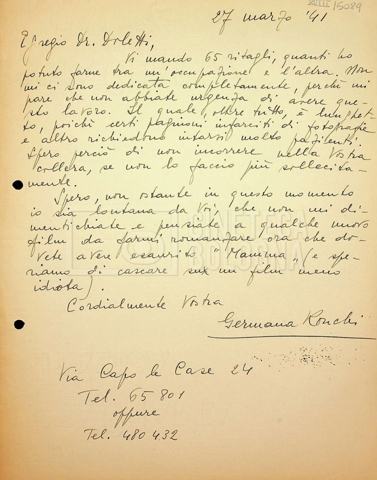 15089
27 marzo '41
Egregio Dr. Doletti,
Vi mando 65 ritagli, quanti ho
potuto farne tra un'occupazione e l'altra. Non
mi ci sono dedicata completamente, perchè mi
pare che non abbiate urgenza di avere que-
sto lavoro. Il quale, oltre tutto, è lunghet-
to, poichè certi paginoni infarciti di fotografie
e altro richiedono intarsi molto pazienti.
Spero perciò di non incorrere nella Vostra
collera, se non lo faccio più sollecita-
mente.
Spero, non ostante in questo momento
io sia lontana da Voi, che non mi di-
mentichiate e pensiate a qualche nuovo
film da farmi romanzare ora che do-
vete avere esaurito "Mamma" (e spe-
riamo di cascare su un film meno
idiota).
Cordialmente Vostra
Germana Ronchi
Via Capo le Case 24
Tel. 65 801
oppure
Tel. 480 432